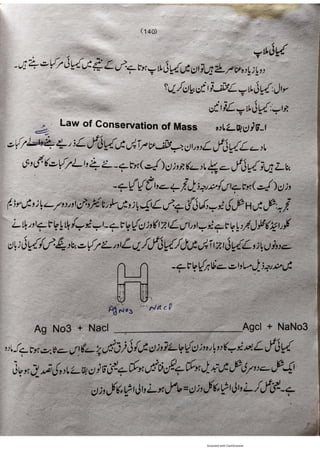 (140)
کیمیائی ملاپ
دو یا زیادہ عناصر ملتے ہیں تو ان میں کیمیائی ملاپ ہوتا ہے جس کے نتیجے میں کیمیائی مرکبات بنتے ہیں۔
سوال: کیمیائی ملاپ کے مختلف قوانین بیان کریں؟
جواب: کیمیائی ملاپ کے قوانین
۱۔ قانون بقائے مادہ Law of Conservation of Mass
مادے کے کیمیائی عمل کے دوران جب مختلف عناصر آپس میں کیمیائی عمل کے ذریعے بننے والے مرکبات
بناتے ہیں تو کیمیائی عمل سے پہلے مادے کا جو وزن (کمیت) ہوتا ہے۔ نئے بننے والے مرکبات کا بھی وہی
وزن (کمیت) ہوتا ہے اس کو مندرجہ ذیل تجربے سے واضح کیا گیا ہے۔
تجربہ: شکل میں H شکل کی ٹیوب دکھائی گئی ہے جس کے ایک بازو میں سلور نائیٹریٹ اور دوسرے بازو میں سوڈیم
کلورائیڈ کا محلول بھر دیا جاتا ہے ٹیوب اور اس کے اجزا کا وزن کیا جاتا ہے۔ اب ٹیوب کو ہلایا جاتا ہے اور ہلانے
سے دونوں بازو کے کیمیائی اجزا آپس میں مل کر کیمیائی عمل کریں گے اور نئے مرکبات بنا دینگے جس کو کیمیائی زبان
میں مندرجہ ذیل مساوات سے ظاہر کیا جاتا ہے۔
AgNO3 NaCl
Ag No3 + Nacl ______ Agcl + NaNo3
کیمیائی عمل کے بعد ٹیوب کا دوبارہ وزن کیا جائے تو وزن میں کوئی فرق نہیں پڑے گا اس سے ثابت ہوتا ہے کہ مادہ
ایک شکل سے دوسری شکل میں تبدیل ہو سکتا ہے لیکن فنا نہیں ہو سکتا ہے یعنی قانون بقائے مادہ کی تصدیق ہو جاتی
ہے۔ یعنی عمل کرنے والی اشیاء کا کل وزن = حاصل ہونے والی اشیاء کا کل وزن
Scanned with CamScanner